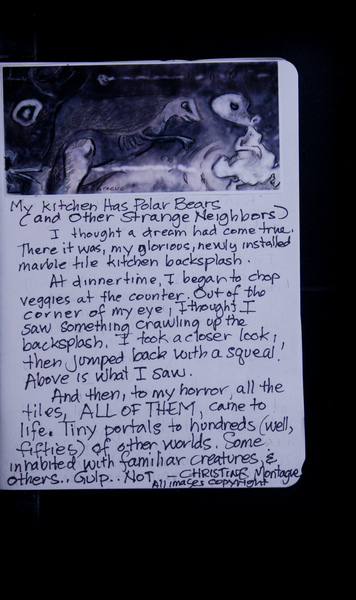 My Kitchen Has Polar Bears
(and Other Strange Neighbors)
I thought a dream had come true.
There it was, my glorious, newly installed
marble tile kitchen backsplash.
At dinnertime, I began to chop
veggies at the counter. Out of the
corner of my eye, I thought I
saw something crawling up the
backsplash. I took a closer look,
then jumped back with a squeal!
Above is what I saw.
And then, to my horror, all the
tiles, ALL OF THEM, came to
life. Tiny portals to hundreds (well,
fifties) of other worlds. Some
inhabited with familiar creatures, &
others.. Gulp.. NOT. - CHRISTINE Montague
All images copyright